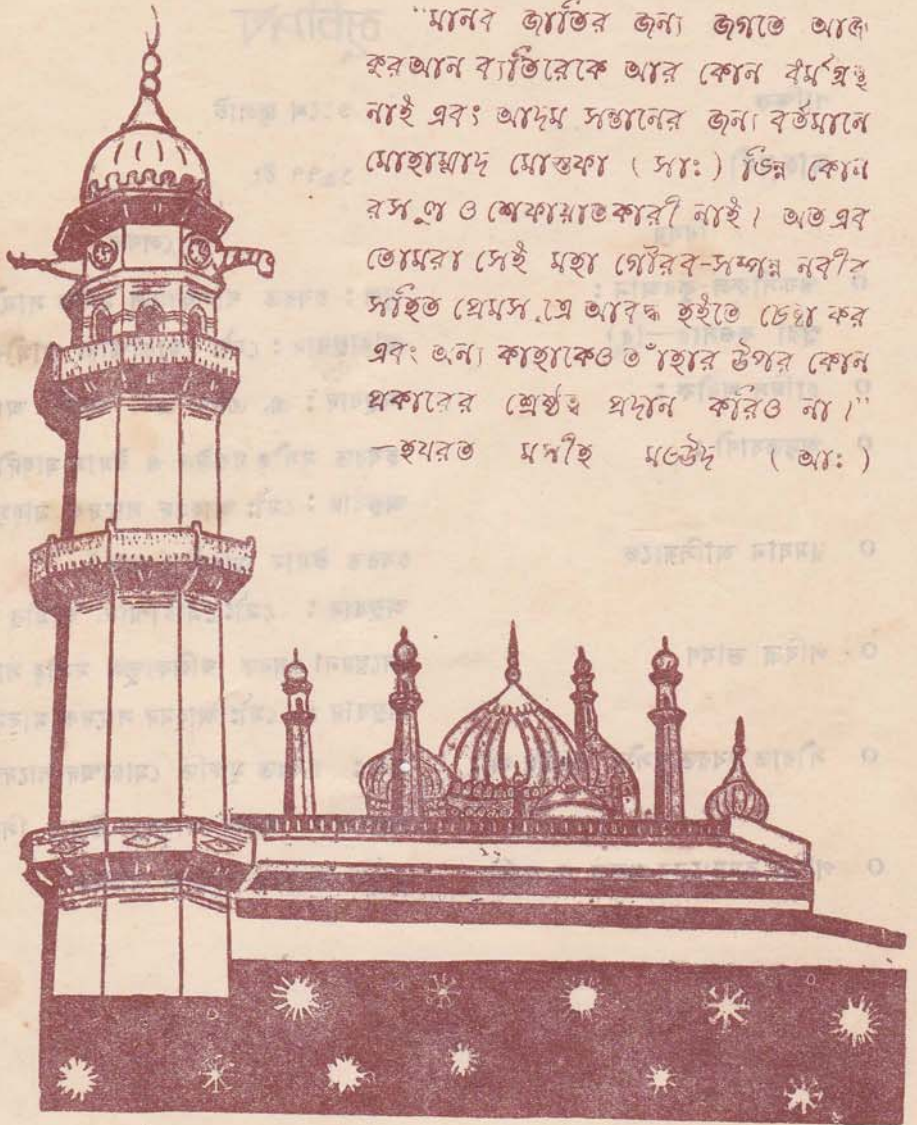 "মানব জাতির জন্য জগতে আজ
কুরআন ব্যতিরেকে আর কোন ধর্মগ্রন্থ
নাই এবং আদম সন্তানের জন্য বর্তমানে
মোহাম্মাদ মোস্তফা ( সাঃ ) ভিন্ন কোন
রসূল ও শেফায়াতকারী নাই। অতএব
তোমরা সেই মহা গৌরব-সম্পন্ন নবীর
সহিত প্রেমসূত্রে আবদ্ধ হইতে চেষ্টা কর
এবং অন্য কাহাকেও তাঁহার উপর কোন
প্রকারের শ্রেষ্ঠত্ব প্রদান করিও না।"
—হযরত মসীহ মওউদ ( আঃ )